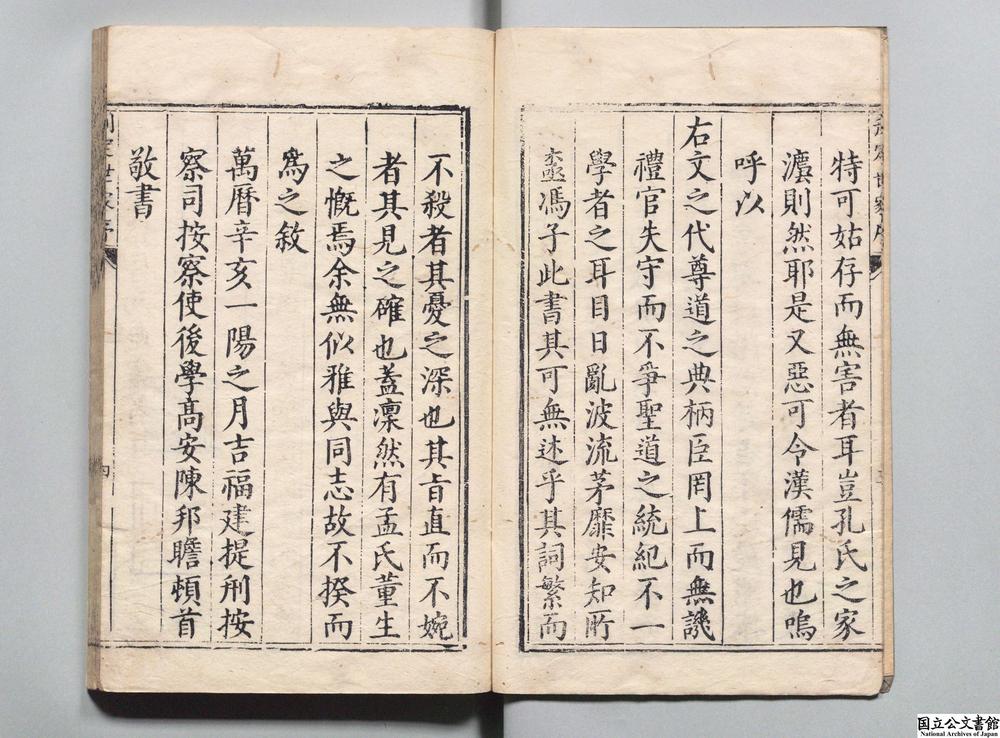 特可姑存而無害者耳豈孔氏之家
瀆則然耶是又惡可令漢儒見也嗚
呼以
右文之代尊道之典柄臣罔上而無譏
禮官失守而不爭聖道之統紀不一
學者之耳目日亂波流茅靡安知所
㡳馮子此書其可無述乎其詞繁而
不殺者其憂之深也其旨直而不婉
者其見之確也蓋凜然有孟氏董生
之慨焉余無似雅與同志故不揆而
爲之敘
萬曆辛亥一陽之月吉福建提刑按
察司按察使後學高安陳邦瞻頓首
敬書
四
国立公文書館
National Archives of Japan